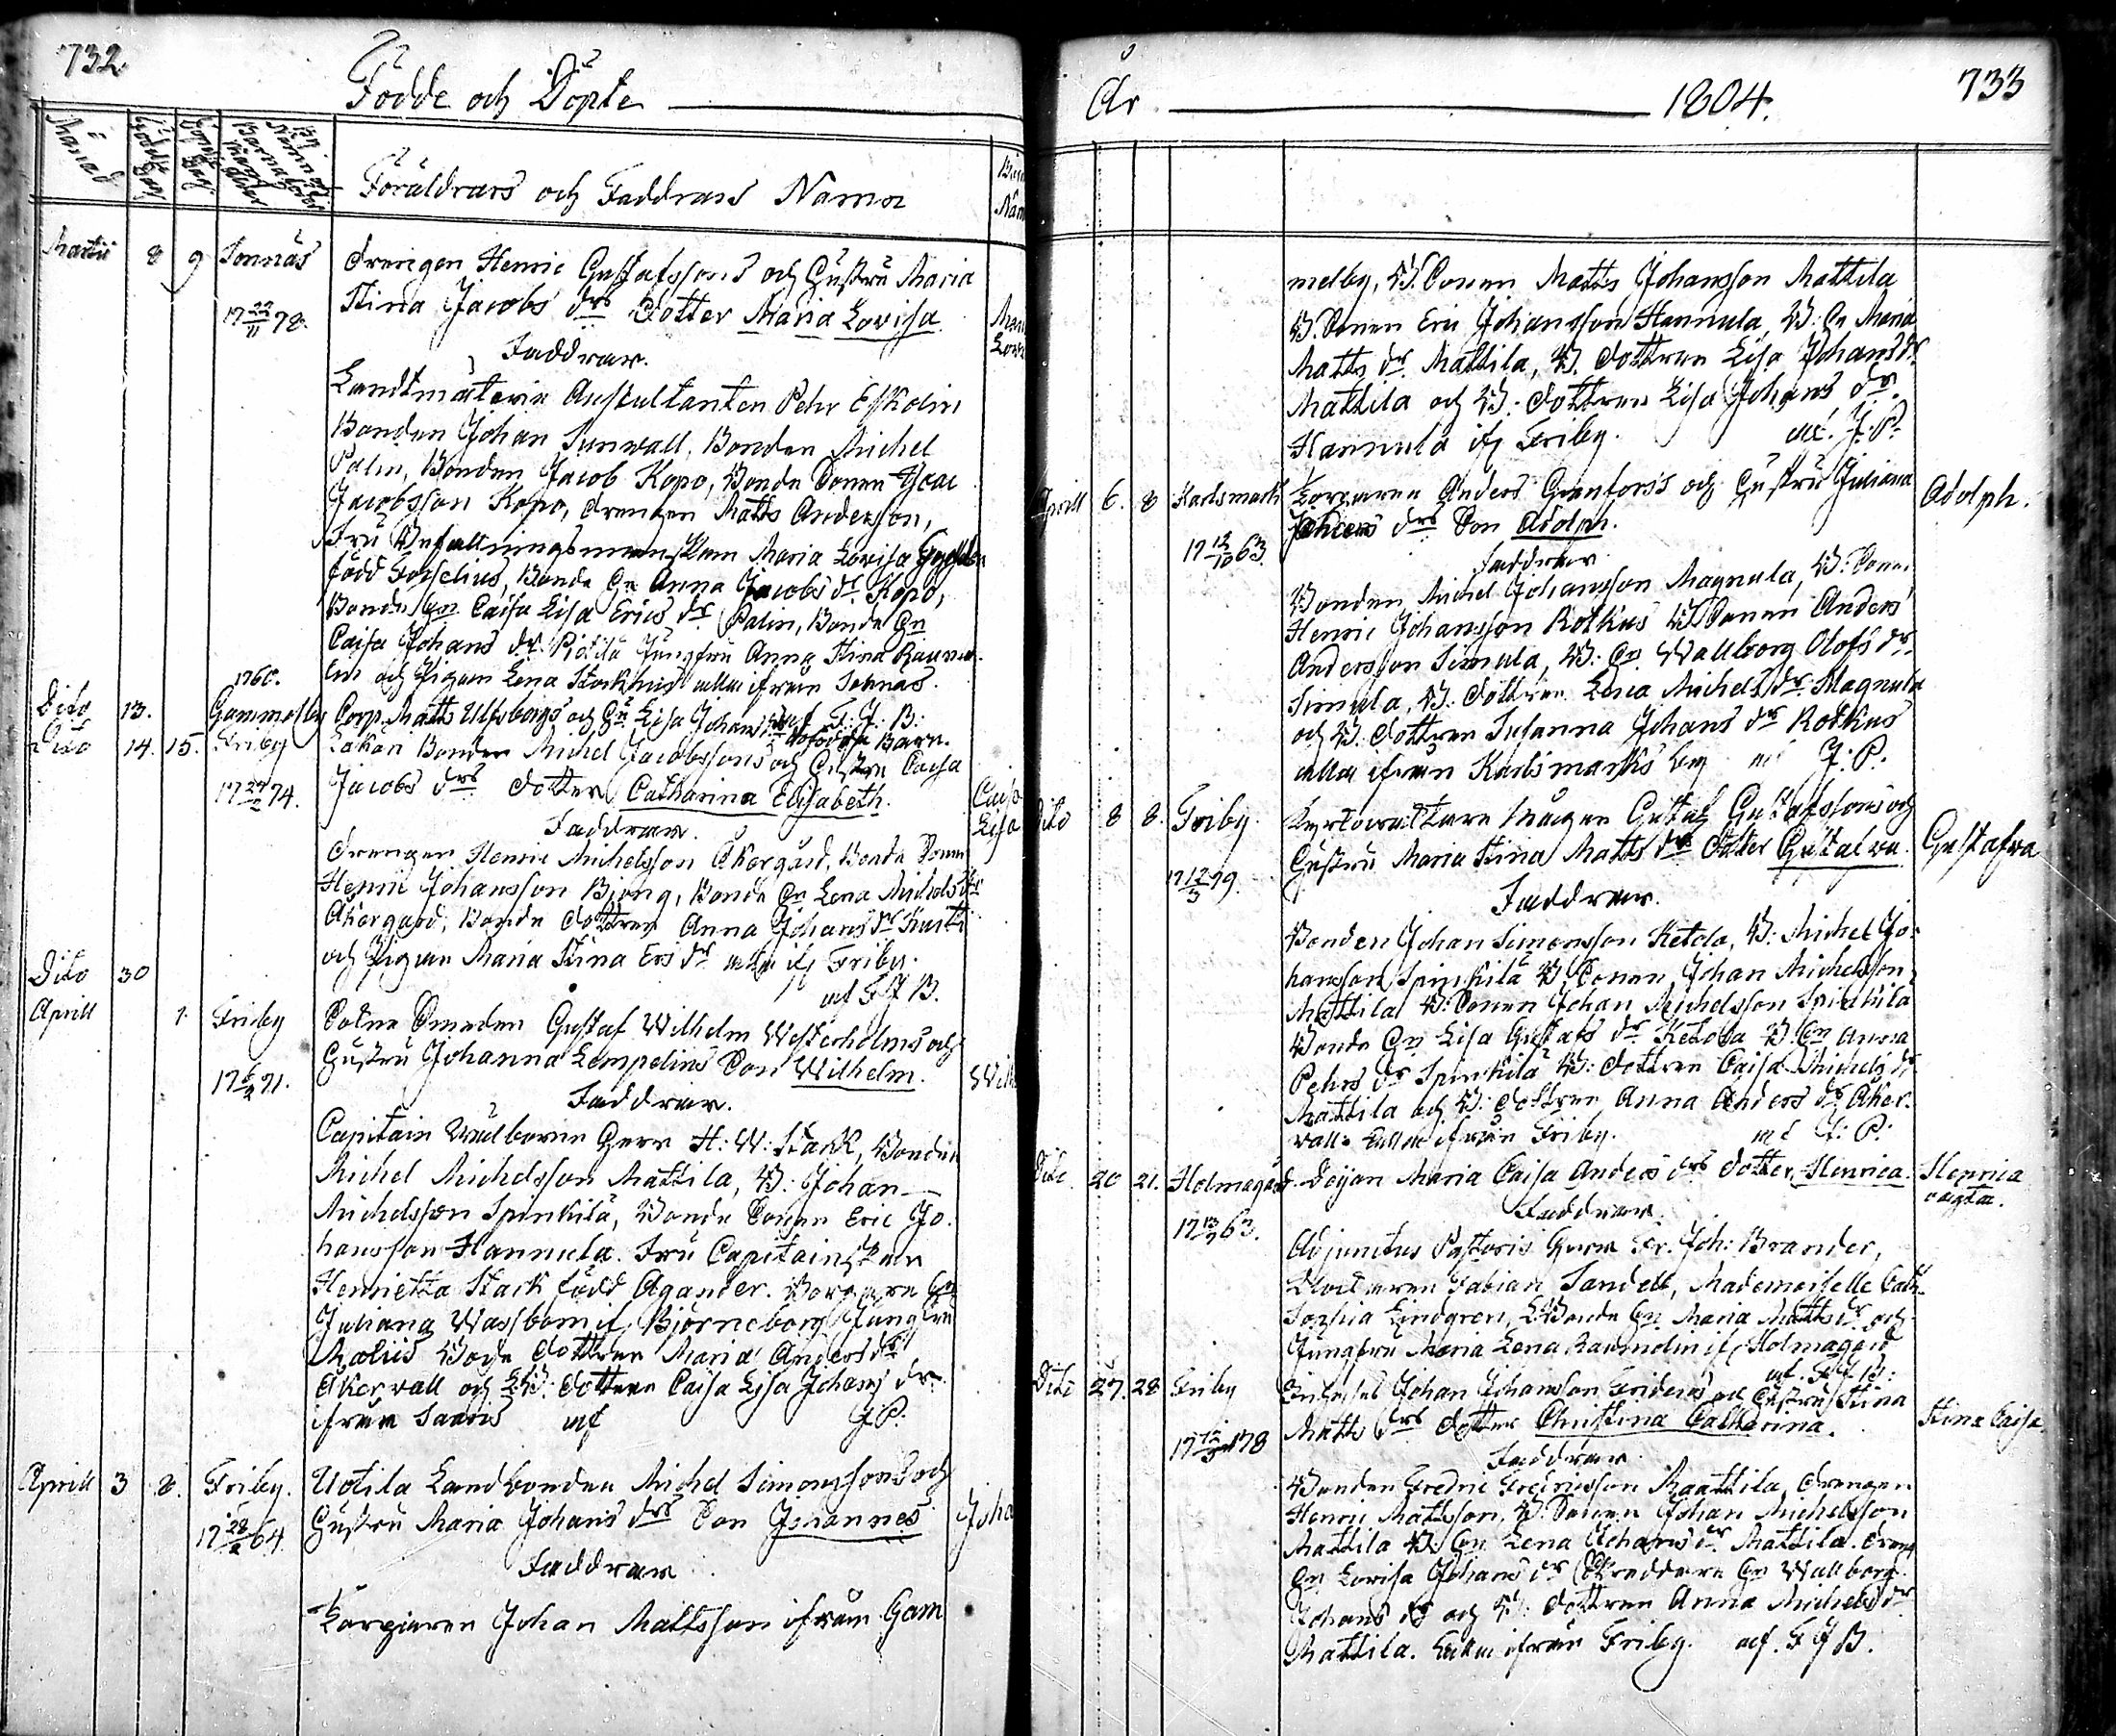 732.
Födde och Döpte
Månad
Födelse Dag
Döpelse Dag
Föräldrars och Faddrars Namn
Martii 8 9 Sonnäs Drengen Henric Gustafssons och Hustru Maria
17 22/11 78. Stina Jacobs drs Dotter Maria Lovisa
Faddrar.
Landtmäterie Auscultanten Pehr Eskolin
Bonden Johan Sunwall, Bonden Michel
Palin, Bonden Jacob Kopo, Bonde Sonen Isac
Jacobsson Kopo, Drengen Matts Andersson,
Fru Befallningsmanskan Maria Lovisa
född Forselius, Bonde Hu Anna Jacobs dr Kopo,
Bonde Hu Caisa Lisa Erics dr Palin, Bonde Hu
Caisa Johans dr Jungfru Anna Stina
och Pigan Lena alla ifrån Sonnäs.
1760.
Dito 13. Gammelby Corp. Matts Ulfsbergs och Hu Lisa Johans dödfödda Barn.
Dito 14. 15. Friby Bonden Michel Jacobssons och Hustru Caisa
17 24/2 74. Jacobs drs Dotter Catharina Elisabeth. Caisa Lisa
Faddrar.
Drengen Henric Michelsson Åkergård, Bonde Sonen
Henric Johansson Biong, Bonde Hu Lena Michels dr
Åkergård, Bonde Dottren Anna Johans dr
och Pigan Maria Stina Ers dr alla if Friby.
Dito 30
af F J B.
Aprill 1. Friby Smeden Gustaf Wilhelm Westerholms och
Hustru Johanna Lempelius Son Wilhelm.
17 6/2 71.
Faddrar.
Capitain Wälborne Herr H: W: Stack, Bonden
Michel Michelsson Mattila, B: Johan
Michelsson Spinkilä, Bonde Sonen Eric Jo
hansson Hannula. Fru Capitainskan
Henrietta Stack född Agander. Borgare Hu
Juliana Wassbom if Björneborg Jungfru
Molius Bonde Dottren Maria Anders dr
Åkervall och B: Dottren Caisa Lisa Johans dr
ifrån Saaris af J P:
Aprill 3 8. Friby. Uotila Landbonden Michel Simonssons och
17 28/2 64. Hustru Maria Johans drs Son Johannes
Faddrar
Torparen Johan Mattsson ifrån Gam
År 1804. 733
melby, B. Sonen Matts Johansson Mattila
B. Sonen Eric Johansson Hannula, B: Hu Maria
Matts dr Mattila, B. Dottren Lisa Johans dr
Mattila och B: Dottren Lisa Johans dr
Hannula if Friby. af. J. P.
Aprill 6. 8 Karlsmark Torparen Anders Granfors's och Hustru Juliana Adolph.
17 12/10 63. drs Son Adolph.
Faddrar
Bonden Michel Johansson Magnula, B: Sonen
Henric Johansson Rotkus B Sonen Anders
Andersson Simula, B: Hu Wallborg Olofs dr
Simula, B: Dottren Lena Michels dr Magnula
och B: Dottren Susanna Johans dr Rotkus
alla ifrån Karlsmarks by af J: P:
Dito 8 8. Friby. Mågen Gustaf Gustafssons och
Hustru Maria Stina Matts drs Dotter Gustafva. Gustafva
17 12/3 79.
Faddrar.
Bonden Johan Simonsson Ketola, B: Michel Jo-
hansson Spinkilä B. Sonen Johan Michelsson
Mattila B: Sonen Johan Michelsson Spinkilä
Bonde Hu Lisa Gustafs dr Ketola B. Hu Anna
Pehrs dr Spinkilä B: Dottren Caisa Michels dr
Mattila och B: Dottren Anna Anders dr Åker-
vall. Alla ifrån Friby. af J: P:
Dito. 20 21. Holmagård. Pigan Maria Caisa Anders drs Dotter, Henrica. Henrica
oägta.
17 13/9 63.
Faddrar.
Adjunctus Pastoris Herr Fr. Joh: Brander,
Fabian Sandell, Mademoiselle Cath.
Sophia Lindgren, Bonde Hu Maria Matts dr och
Jungfru Maria Lena Raumolin if Holmagård
af. F J B:
Dito 27. 28 Friby Johan Johansson Friders och Hustru Stina
Matts drs Dotter Christina Catharina. Stina Caisa.
Faddrar
Bonden Fredric Fredricsson Mattila, Drengen
Henric Mattsson, B. Sonen Johan Michelsson
Mattila B. Hu Lena Johans dr Mattila. Dreng
Hu Lovisa Johans dr Skreddare Hu Wallborg
Johans dr och B: Dottren Anna Michels dr
Mattila. Alla ifrån Friby. af. F J B.